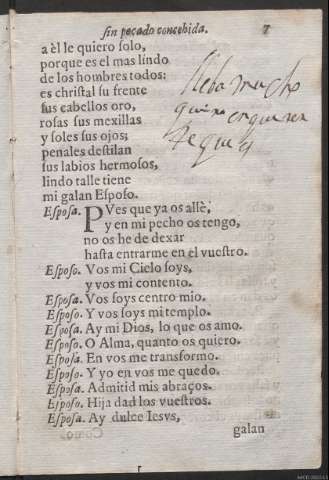 sin pecado concebida. 7
a èl le quiero solo,
porque es el mas lindo
de los hombres todos:
es christal su frente
sus cabellos oro,
rosas sus mexillas
y soles sus ojos;
penales destilan
sus labios hermosos,
lindo talle tiene
mi galan Esposo.
mucho
Esposa. PVes que ya os allè,
y en mi pecho os tengo,
no os he de dexar
hasta entrarme en el vuestro.
Esposo. Vos mi Cielo soys,
y vos mi contento.
Esposa. Vos soys centro mio.
Esposo. Y vos soys mi templo.
Esposa. Ay mi Dios, lo que os amo.
Esposo. O Alma, quanto os quiero.
Esposa. En vos me transformo.
Esposo. Y yo en vos me quedo.
Esposa. Admitid mis abraços.
Esposo. Hija dad los vuestros.
Esposa. Ay dulce Iesvs,
galan